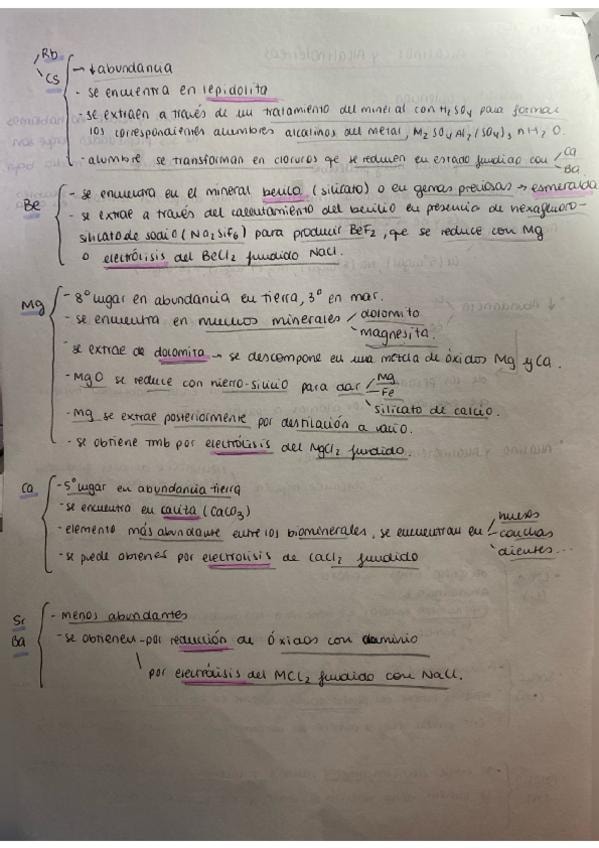 Rb
Cs
→ ↓abundancia
- se encuentra en lepidolita
- se extraen a través de un tratamiento del mineral con H2SO4 para formar
los correspondientes alumbres alcalinos del metal, M2SO4Al2(SO4)3 nH2O.
- alumbre se transforman en cloruros qe se reducen en estado fundido con Ca
Ba
Be
- se encuentra en el mineral berilo (silicato) o en gemas preciosas → esmeralda
- se extrae a través del calentamiento del berilio en presencia de hexafluoro-
silicato de sodio (Na2SiF6) para producir BeF2, que se reduce con Mg
o electrólisis del BeCl2 fundido NaCl.
Mg
- 8º lugar en abundancia en tierra, 3º en mar.
- se encuentra en muchos minerales dolomito
magnesita.
- se extrae de dolomita → se descompone en una mezcla de óxidos Mg y Ca.
- MgO se reduce con hierro-silicio para dar Mg
Fe
silicato de calcio.
- Mg se extrae posteriormente por destilación a vacío.
- se obtiene tmb por electrólisis del MgCl2 fundido.
Ca
- 5º lugar en abundancia tierra
- se encuentra en calcita (CaCO3)
- elemento más abundante entre los biominerales, se encuentran en huesos
conchas
dientes...
- se puede obtener por electrolisis de CaCl2 fundido
Sr
Ba
- menos abundantes
- se obtienen - por reducción de óxidos con aluminio
por electrólisis del MCl2 fundido con NaCl.